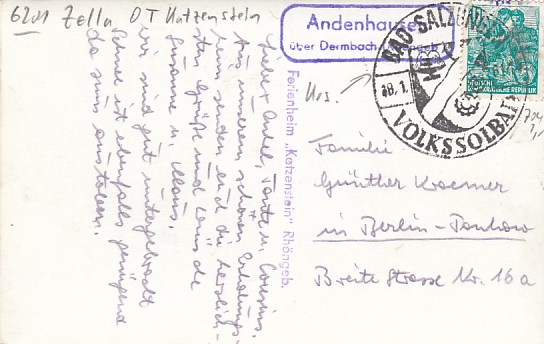 6201 Zella OT Katzenstein
Andenhausen
über Dermbach
BAD SALZUNGEN
18.1.
VOLKSSOLBAD
DEUTSCHE
DEMOKRATISCHE REPUBLIK
Urs.
Ferienheim „Katzenstein" Rhöngeb.
Lieber Onkel, Tante u. Cousins.
Aus unserem schönen Erholungs-
heim senden euch die herzlich-
sten Grüße und Wünsche
Susanne u. Klaus.
Wir sind gut untergebracht
Schnee ist ebenfalls genügend
da zum austoben.
Familie
Günther Kraemer
in Berlin-Pankow
Breite Strasse Nr. 16a